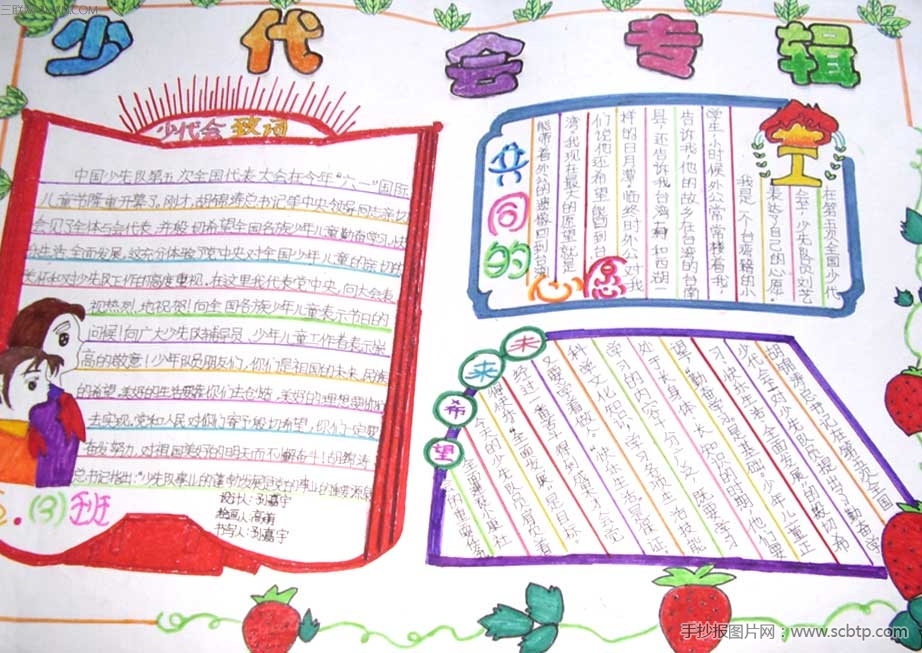 少代会专辑
少代会 致词
中国少先队第五次全国代表大会在今年“六一”国际
儿童节隆重开幕了，刚才，胡锦涛总书记等中央领导同志亲切
会见了全体与会代表，并殷切希望全国各族少年儿童勤奋学习，快
乐生活，全面发展，这充分体现了党中央对全国少年儿童的亲切
和对少先队工作的高度重视，在这里我代表党中央，向大会表
祝热烈地祝贺！向全国各族少年儿童表示节日的
问候！向广大少先队辅导员、少年儿童工作者表示崇
高的敬意！少年队员朋友们，你们是祖国的未来，民族
的希望，美好的生活要靠你们去创造，美好的理想要你们
去实现，党和人民对你们寄予殷切希望，你们一定要
奋发努力，对祖国美好的明天而不懈奋斗！
总书记指出：“少先队事业的蓬勃发展是党的事业的
(3)班
设计：孙嘉宇
绘画：高萌
书写：孙嘉宇
共同的心愿
在第五次全国少代
会上，少先队员刘艺
表达了自己的心愿。
我是一个台湾籍的小
学生，小时候外公常常搂着我，
告诉我，他的故乡在台湾的台南
县，还告诉我台湾有一种和西湖一
样的日月潭。临终时外公对我
们说他还希望能回到台
湾，我现在最大的愿望就是
能带着外公的遗像回到台湾
未来希望
胡锦涛总书记在第五次全国
少代会上对少先队员提出了“勤奋学
习、快乐生活、全面发展”的殷切希
望，“勤奋学习是基础。”少年儿童正
处于长身体、长知识的时期，他们要
学习的内容十分广泛，既要学习
科学文化知识，学习各项生活技能，
又要学着做。“快乐生活”是保证。
经过一番辛苦得到成果才会觉
得快乐。“全面发展”是目标。
今天的少先队员肩负着
全面建设小康社
手抄报图片网：www.scbtp.com